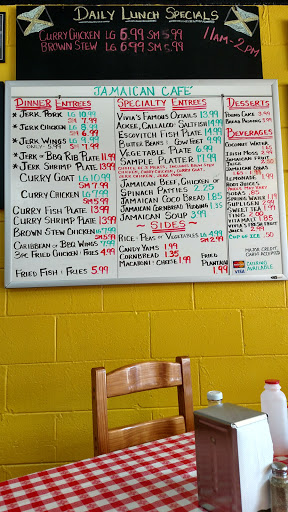 DAILY LUNCH SPECIALS
CURRY CHICKEN LG 6.99 SM 5.99
BROWN STEW LG 6.99 SM 5.99
11AM-2PM
JAMAICAN CAFE'
DINNER ENTREES
* JERK PORK LG 10.99
SM 7.99
* JERK CHICKEN LG 8.99
SM 6.99
* JERK WINGS LG 9.99
ONLY 5.99 SM 7.99
* JERK or BBQ RIB PLATE 11.99
* JERK SHRIMP PLATE 13.99
CURRY GOAT LG 10.99
SM 7.99
CURRY CHICKEN LG 7.99
SM 5.99
CURRY FISH PLATE 13.99
CURRY SHRIMP PLATE 13.99
BROWN STEW CHICKEN LG 7.99
SM 5.99
CARIBBEAN or BBQ WINGS 7.99
3PC FRIED CHICKEN FRIES 4.99
FRIED FISH & FRIES 5.99
SPECIALTY ENTREES
VIVIA'S FAMOUS OXTAILS 13.99
ACKEE, CALLALOO & SALTFISH 14.99
ESCOVITCH FISH PLATE 14.99
BUTTER BEANS & COW FEET 9.99
VEGETABLE PLATE 6.99
SAMPLE PLATTER 17.99
JAMAICAN BEEF, CHICKEN or
SPINACH PATTIES 2.25
JAMAICAN COCO BREAD 1.85
JAMAICAN CORNBREAD PUDDING 1.85
JAMAICAN SOUP 3.99
~ SIDES ~
RICE & PEAS or VEGETABLES LG 4.99
SM 2.99
CANDY YAMS 1.99
CORNBREAD 1.35
MACARONI & CHEESE 1.99
FRIED
PLANTAIN
1.99
DESSERTS
POUND CAKE 3.99
BREAD PUDDING 3.99
BEVERAGES
COCONUT WATER
IRISH MOSS 2.99
JAMAICAN FRUIT
JUICE
JAMAICAN SODAS
LEMONADE 1.99
SODAS
SPRING WATER
SUPLIGEN 2.99
SWEET TEA 1.99
TING 2.00
VITA MALT 1.85
VIVIA'S FRESH FRUIT
JUICE 2.99
CUP OF ICE .50
MAJOR CREDIT
CARDS ACCEPTED
VISA
CATERING
AVAILABLE